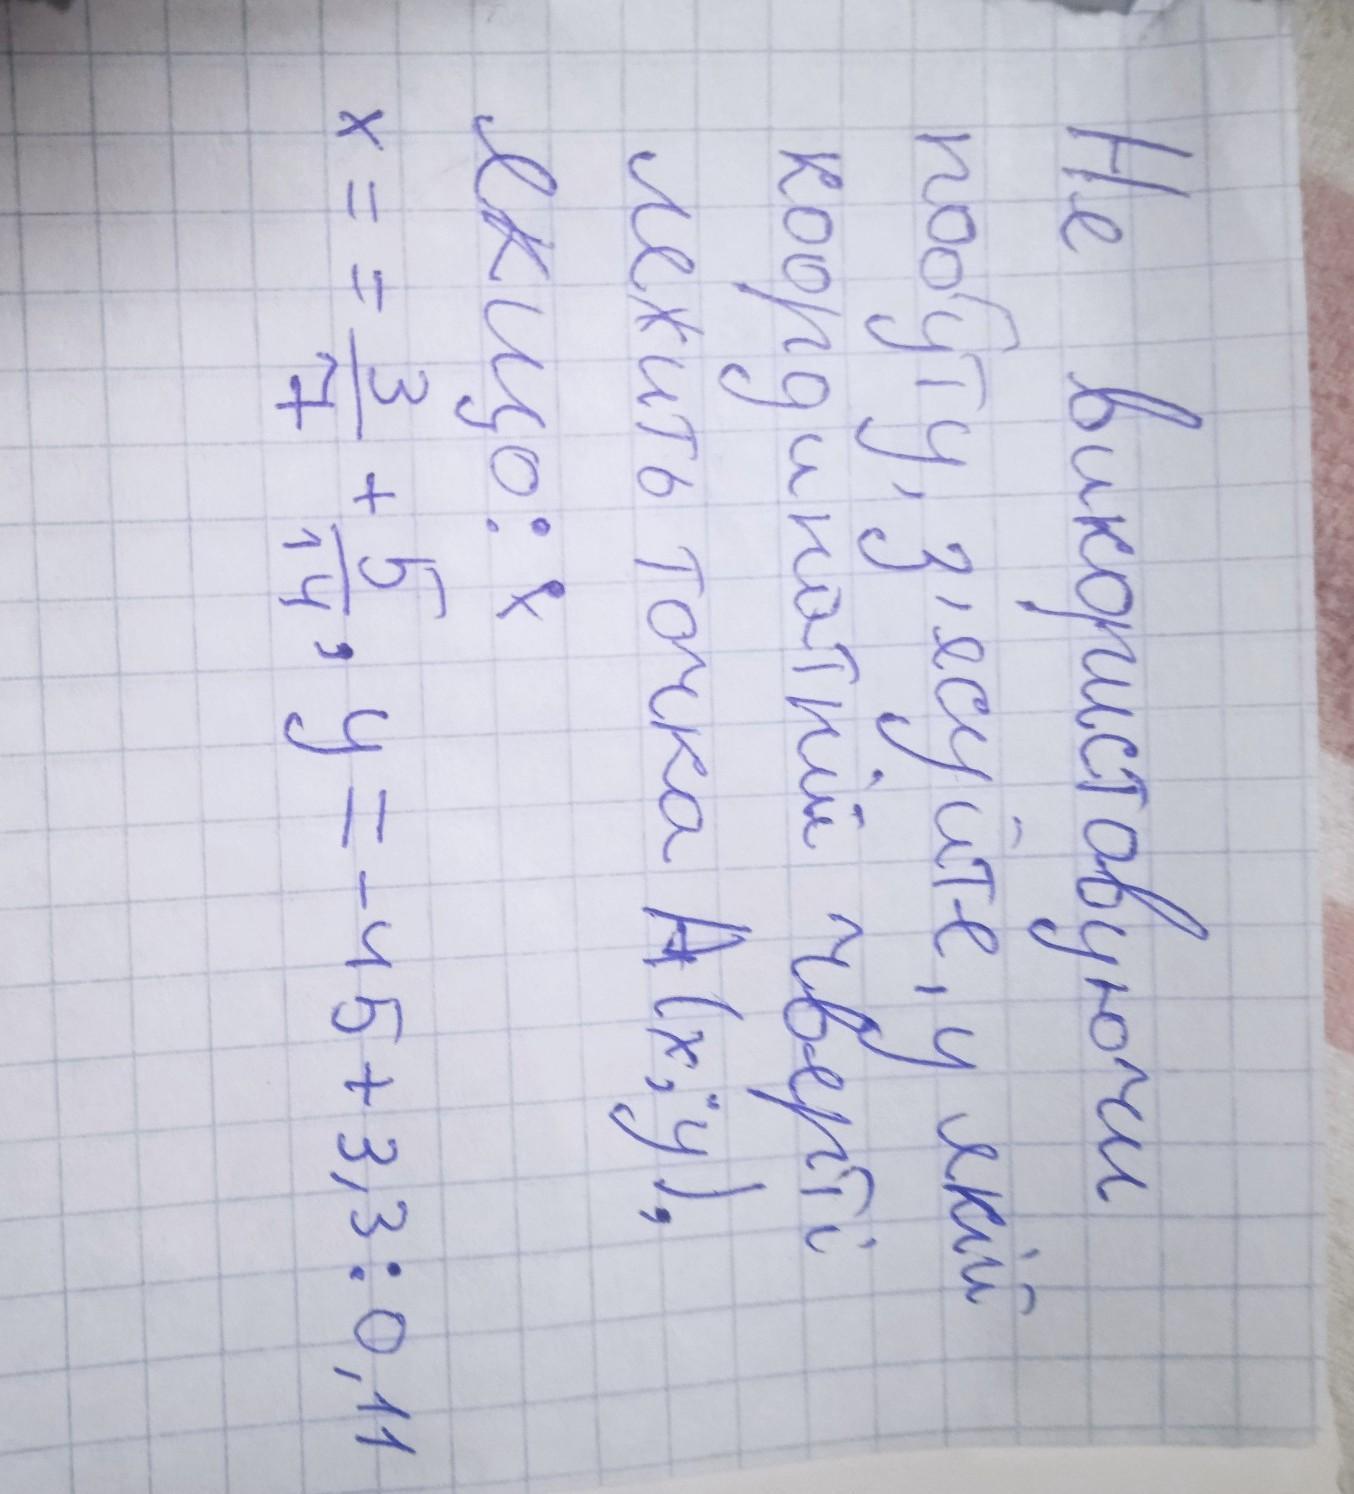 Не використовуючи
побуту, з'ясуйте, у якій
координатній чверті
лежить точка А(х; у),
якщо: х
х = = 3/7 + 5/14, у = -15 + 3,3 : 0,11